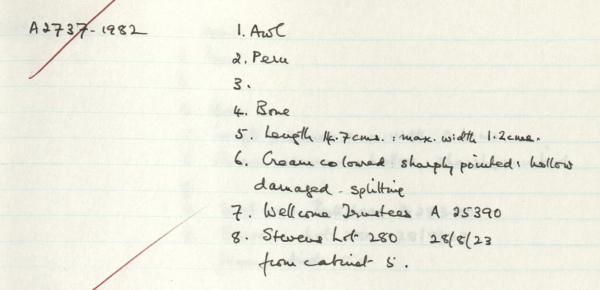 A2737-1982 1. Awl
2. Peru
3.
4. Bone
5. Length 14.7cms. : max. width 1.2cms.
6. Cream coloured: sharply pointed: hollow
damaged - splitting
7. Wellcome Trustees A 25390
8. Stevens Lot 280 28/8/23
from cabinet 5.